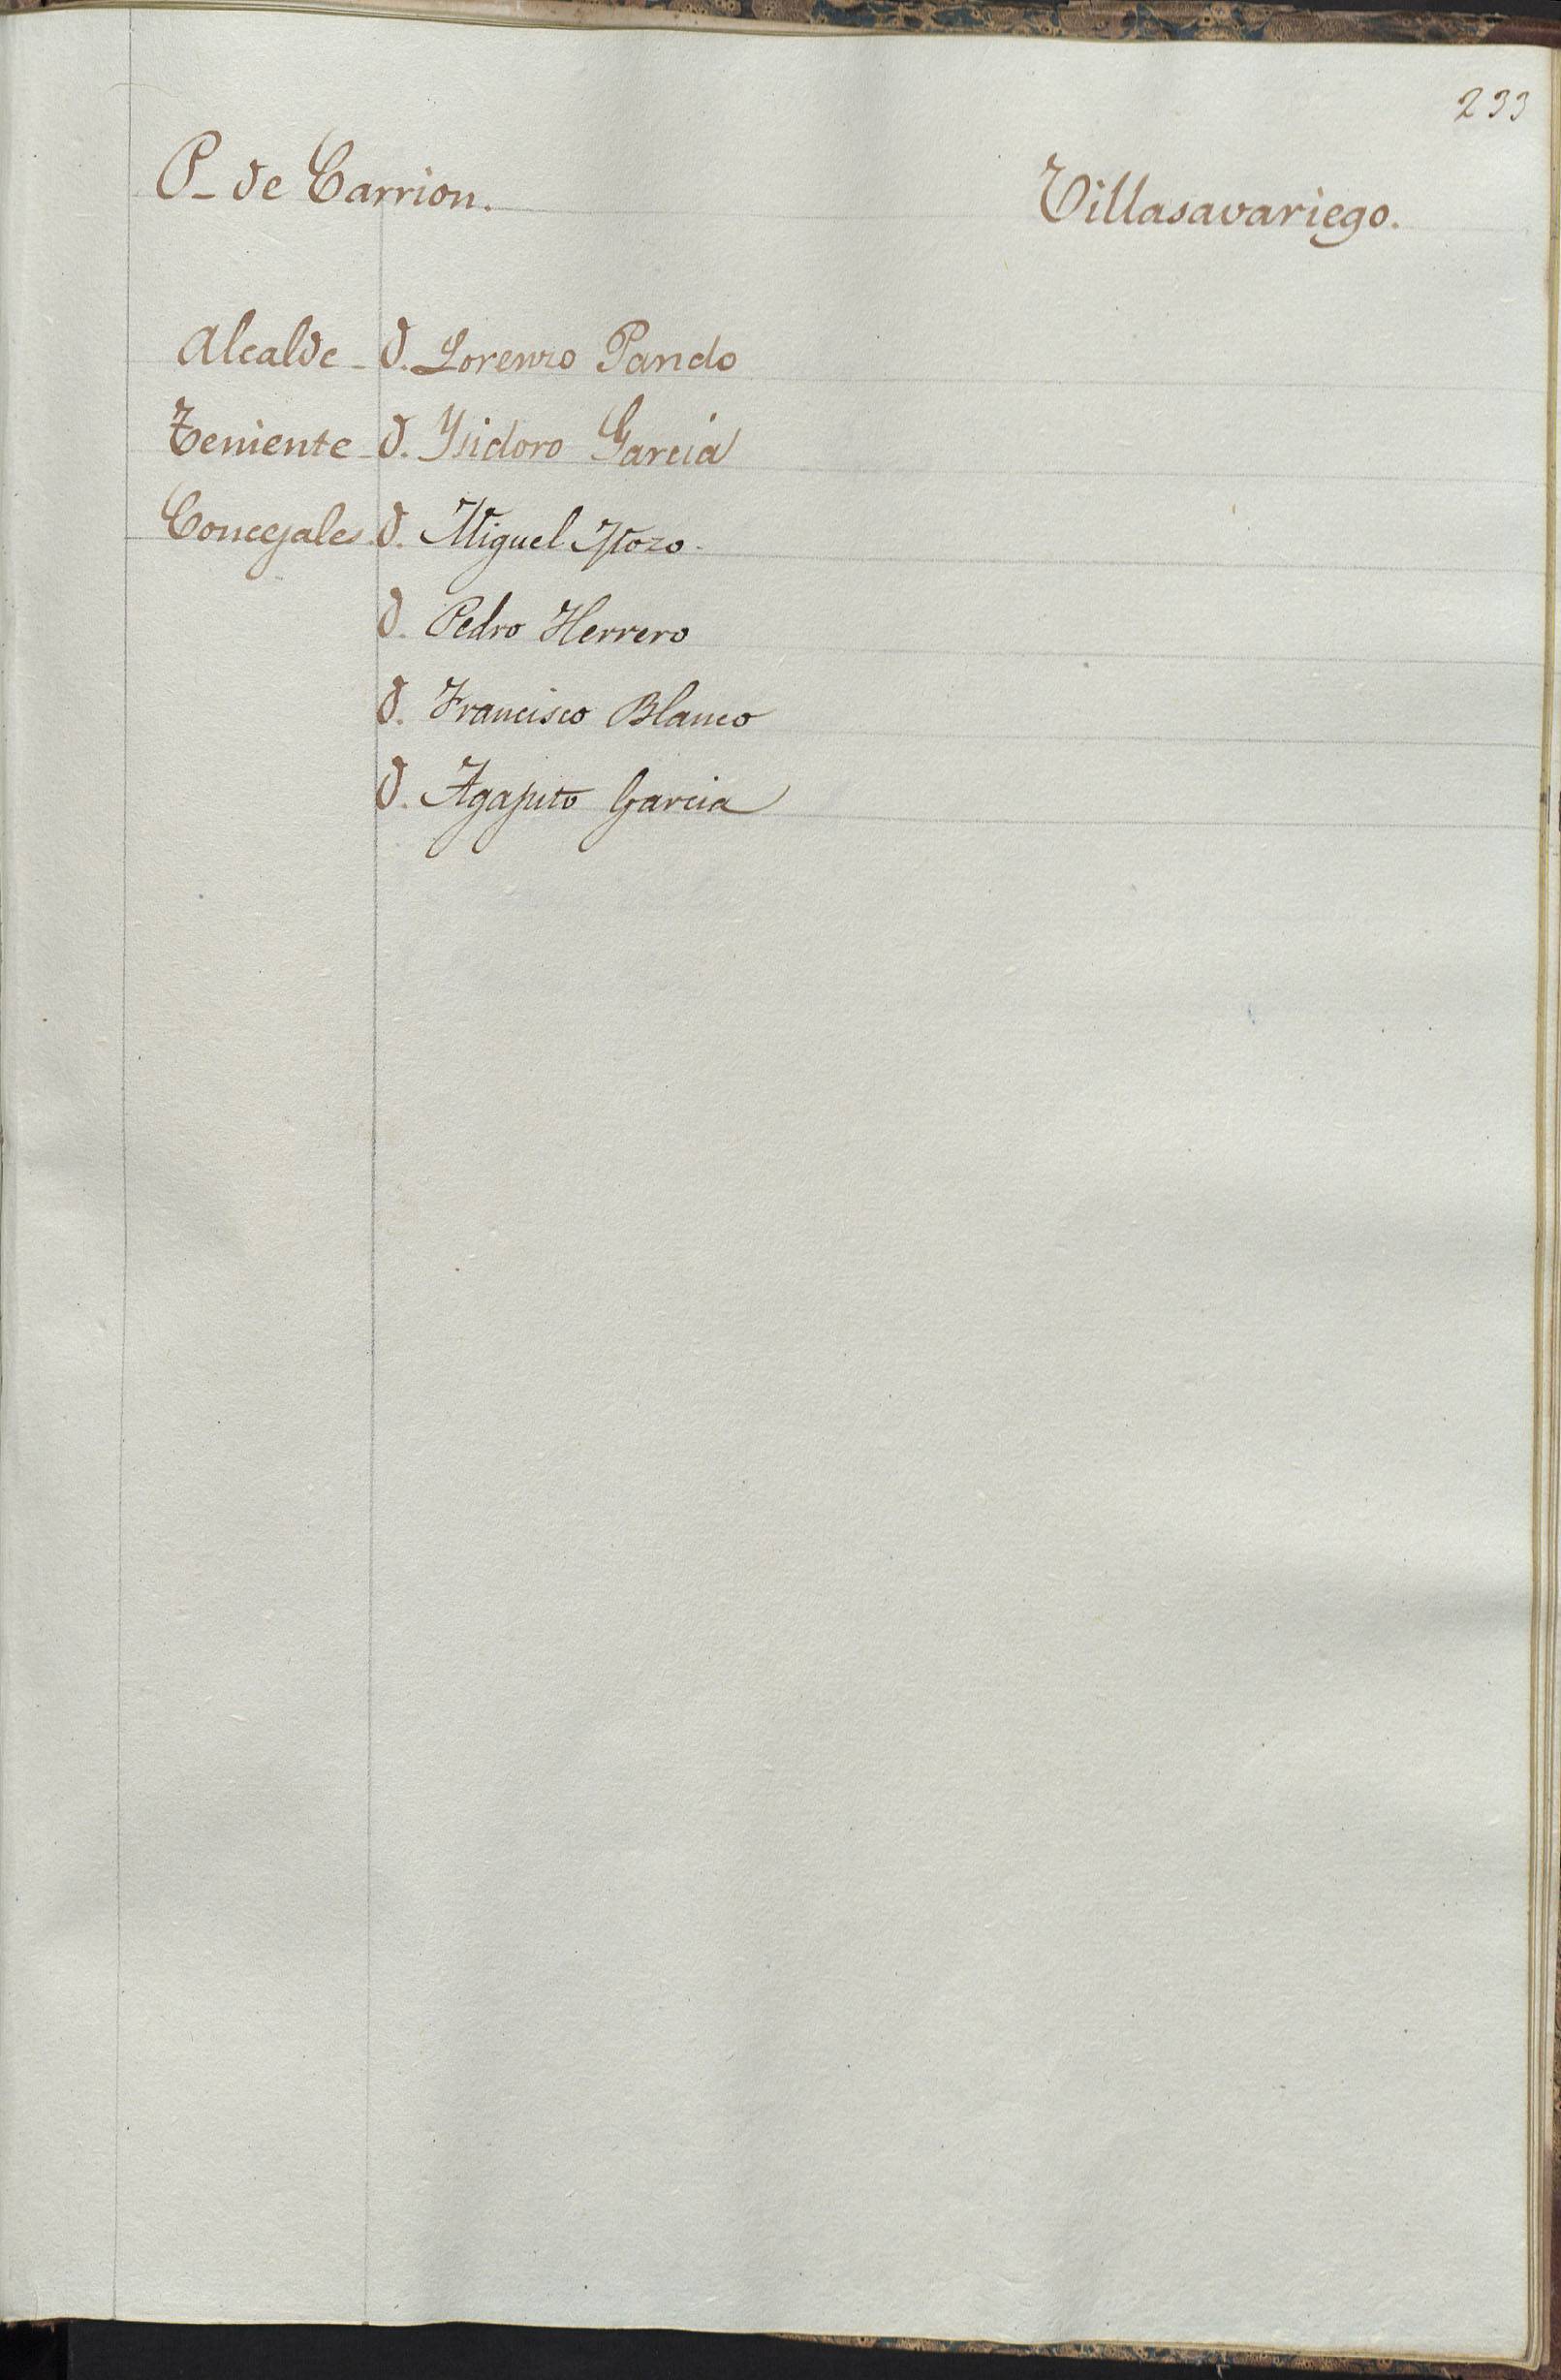 233
P- de Carrion.
Villasavariego.
Alcalde - D. Lorenzo Pando
Teniente - D. Ysidoro Garcia
Concejales. D. Miguel Pozo.
D. Pedro Herrero
D. Francisco Blanco
D. Agapito Garcia